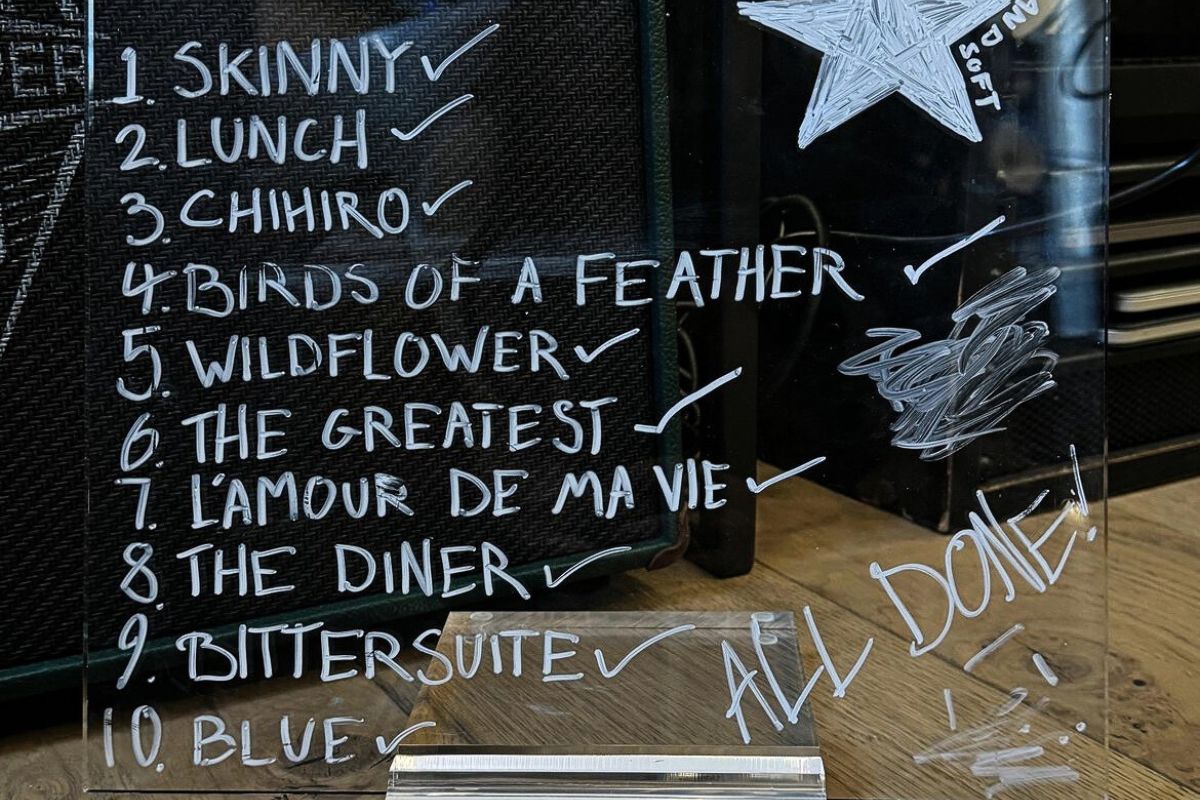 1. SKINNY ✓
2. LUNCH ✓
3. CHIHIRO ✓
4. BIRDS OF A FEATHER ✓
5. WILDFLOWER ✓
6. THE GREATEST ✓
7. L'AMOUR DE MA VIE ✓
8. THE DINER ✓
9. BITTERSUITE ✓
10. BLUE ✓
AND SOFT
ALL DONE!